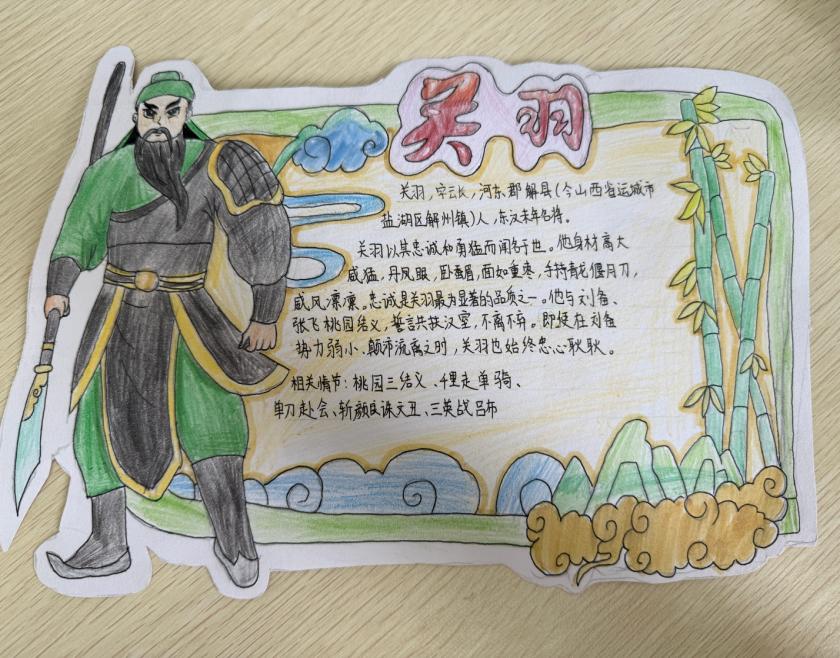 关羽
关羽,字云长,河东郡解县(今山西省运城市
盐湖区解州镇)人,东汉末年名将。
关羽以其忠诚和勇猛而闻名于世。他身材高大
威猛,丹凤眼,卧蚕眉,面如重枣,手持青龙偃月刀,
威风凛凛。忠诚是关羽最为显著的品质之一。他与刘备、
张飞桃园结义,誓言共扶汉室,不离不弃。即使在刘备
势力弱小、颠沛流离之时,关羽也始终忠心耿耿。
相关情节:桃园三结义、千里走单骑、
单刀赴会、斩颜良诛文丑、三英战吕布